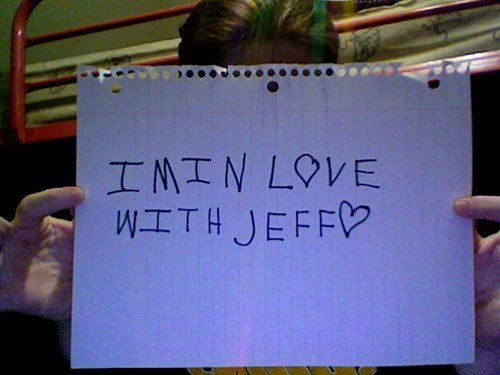 IM IN L♡VE
WITH JEFF♡